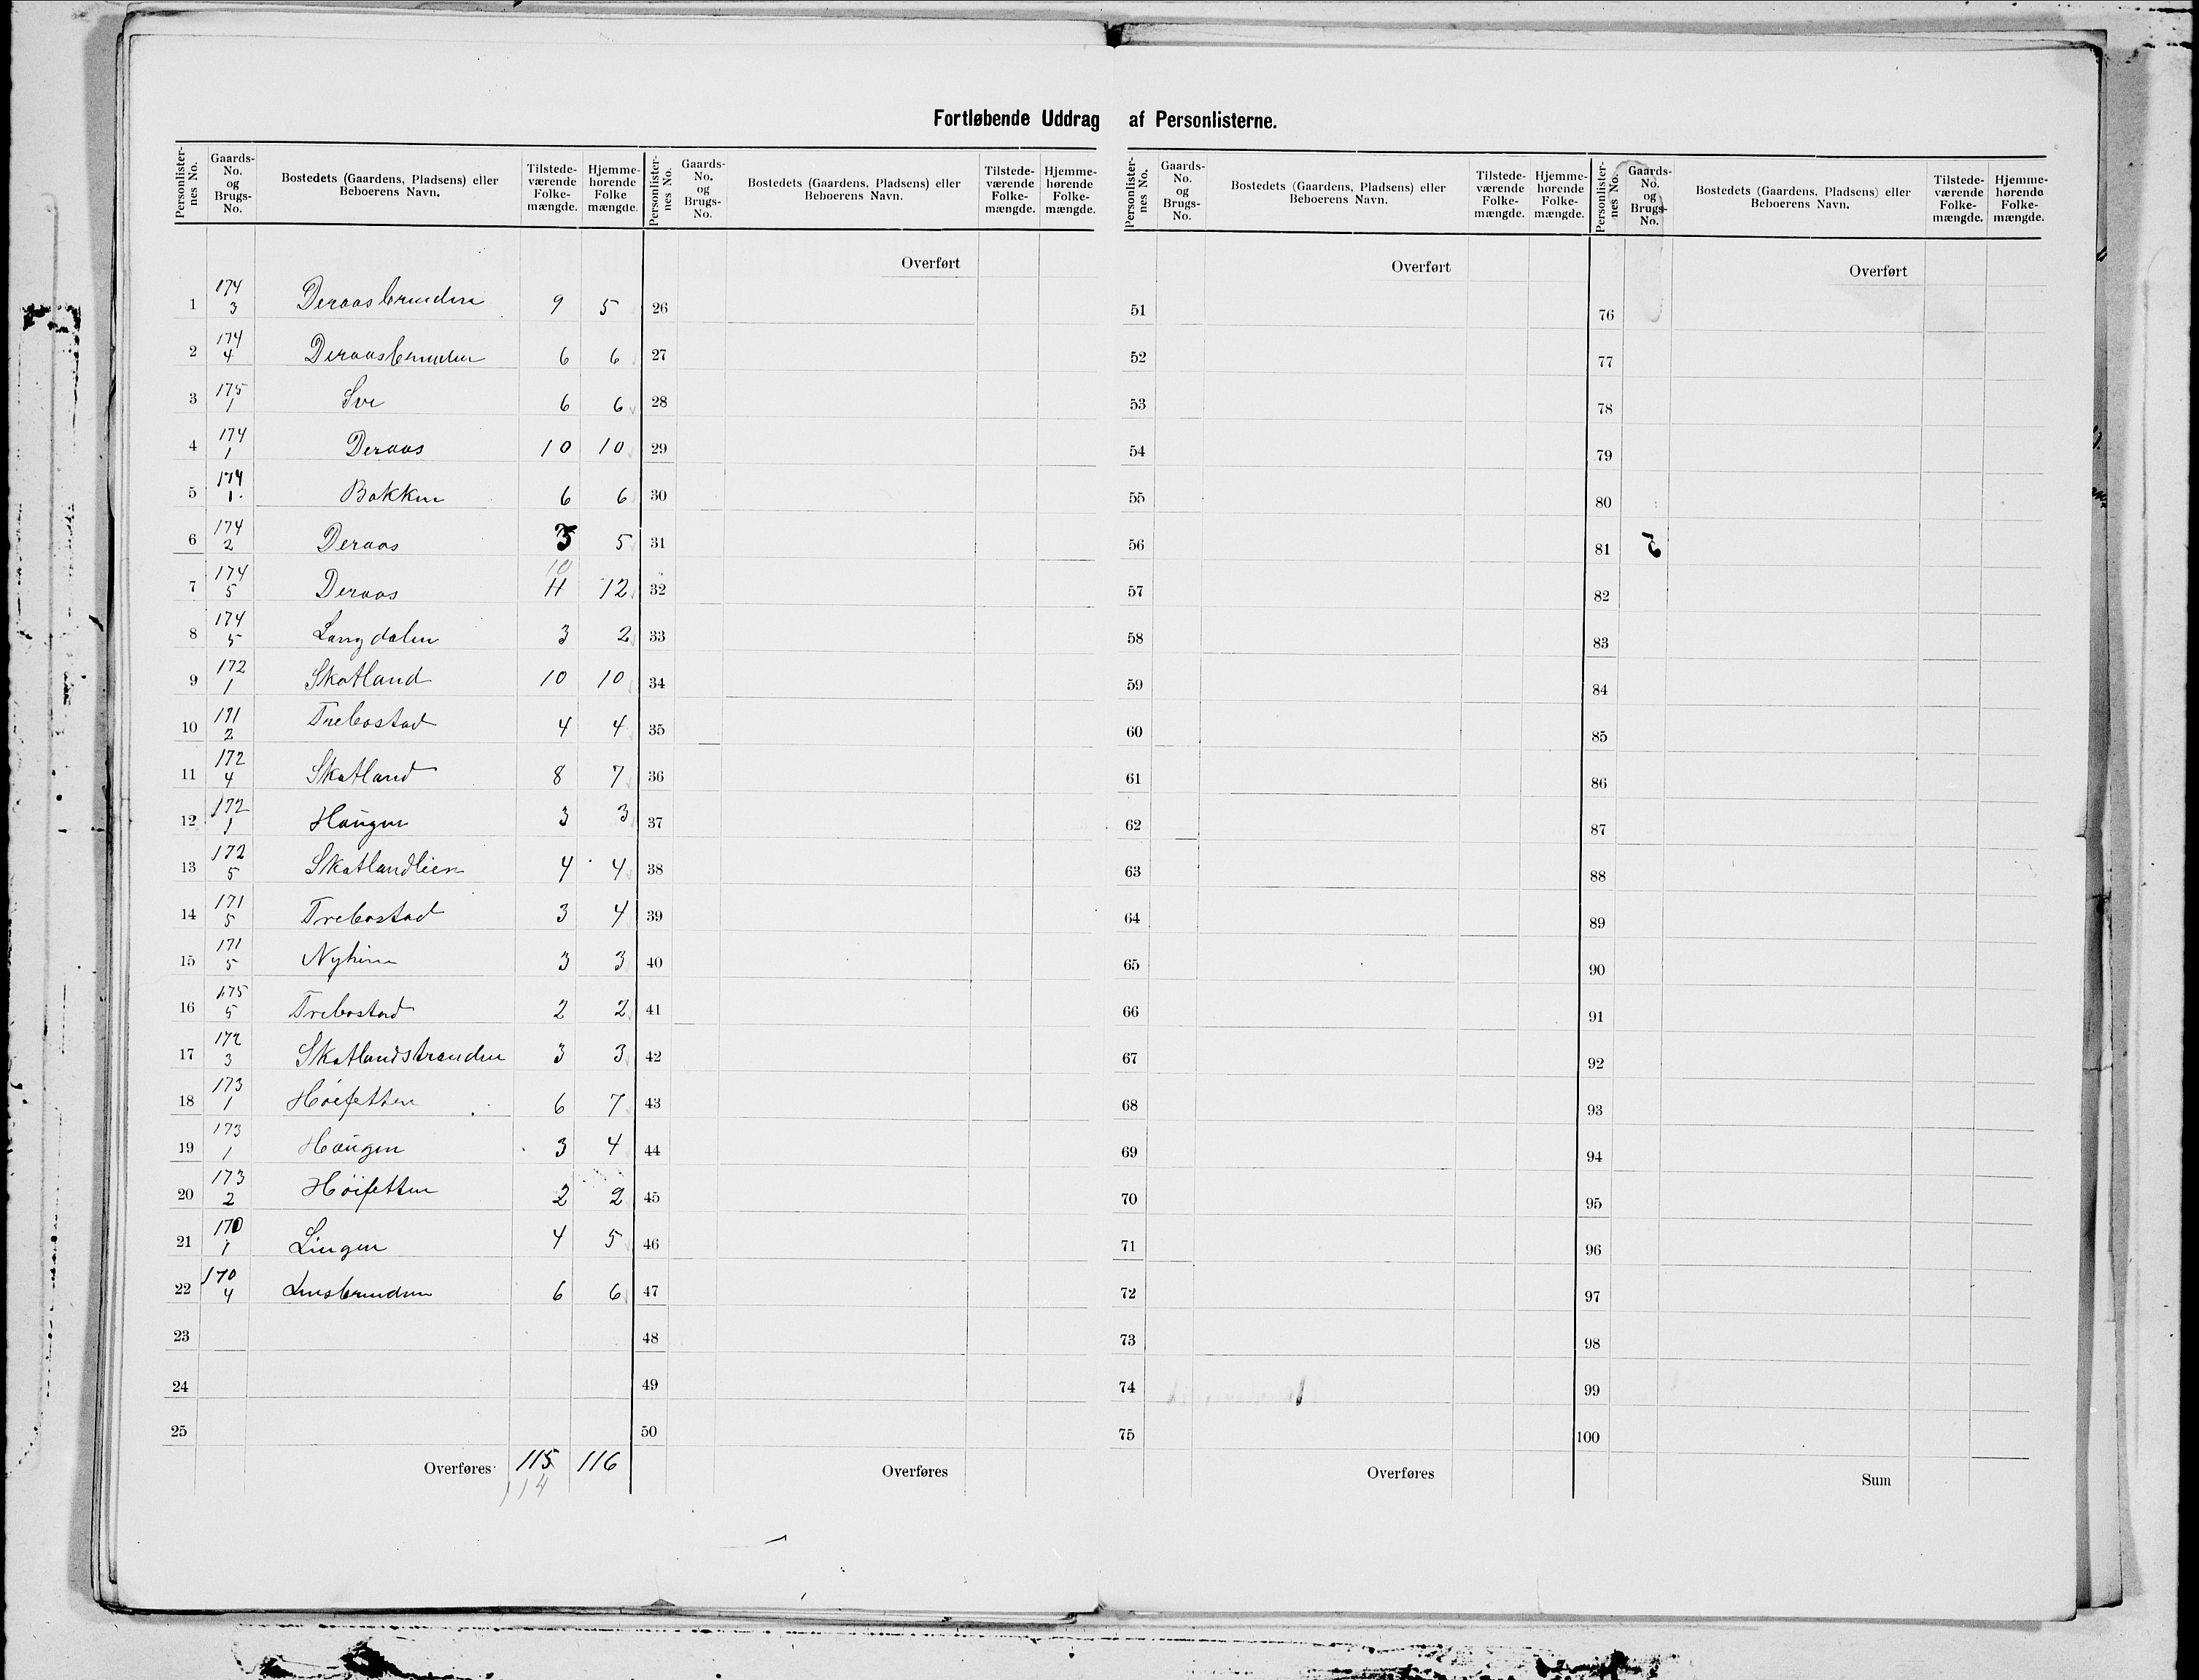 Fortløbende Uddrag af Personlisterne.
Personlisternes No. | Gaards-No. og Brugs-No. | Bostedets (Gaardens, Pladsens) eller Beboerens Navn. | Tilstedeværende Folkemængde. | Hjemmehørende Folkemængde.
1 | 174/3 | Deraasbruden | 9 | 5
2 | 174/4 | Deraasbruden | 6 | 6
3 | 175/1 | Sve | 6 | 6
4 | 174/1 | Deraas | 10 | 10
5 | 174/1 | Bakken | 6 | 6
6 | 174/2 | Deraas | 3 | 5
7 | 174/5 | Deraas | 10 11 | 12
8 | 174/5 | Langdalen | 3 | 2
9 | 172/1 | Skatland | 10 | 10
10 | 171/2 | Trebostad | 4 | 4
11 | 172/4 | Skatland | 8 | 7
12 | 172/1 | Haugen | 3 | 3
13 | 172/5 | Skatlandlien | 4 | 4
14 | 171/5 | Trebostad | 3 | 4
15 | 171/5 | Nyheim | 3 | 3
16 | 175/5 | Trebostad | 2 | 2
17 | 172/3 | Skatlandstranden | 3 | 3
18 | 173/1 | Høifetten | 6 | 7
19 | 173/1 | Haugen | 3 | 4
20 | 173/2 | Høifetten | 2 | 2
21 | 170/1 | Lingen | 4 | 5
22 | 170/4 | 6 | 6
23
24
25
Overføres 115 116
114
Personlisternes No. | Gaards-No. og Brugs-No. | Bostedets (Gaardens, Pladsens) eller Beboerens Navn. | Tilstedeværende Folkemængde. | Hjemmehørende Folkemængde.
Overført
26
27
28
29
30
31
32
33
34
35
36
37
38
39
40
41
42
43
44
45
46
47
48
49
50
Overføres
Personlisternes No. | Gaards-No. og Brugs-No. | Bostedets (Gaardens, Pladsens) eller Beboerens Navn. | Tilstedeværende Folkemængde. | Hjemmehørende Folkemængde.
Overført
51
52
53
54
55
56
57
58
59
60
61
62
63
64
65
66
67
68
69
70
71
72
73
74
75
Overføres
Personlisternes No. | Gaards-No. og Brugs-No. | Bostedets (Gaardens, Pladsens) eller Beboerens Navn. | Tilstedeværende Folkemængde. | Hjemmehørende Folkemængde.
Overført
76
77
78
79
80
81
82
83
84
85
86
87
88
89
90
91
92
93
94
95
96
97
98
99
100
Sum